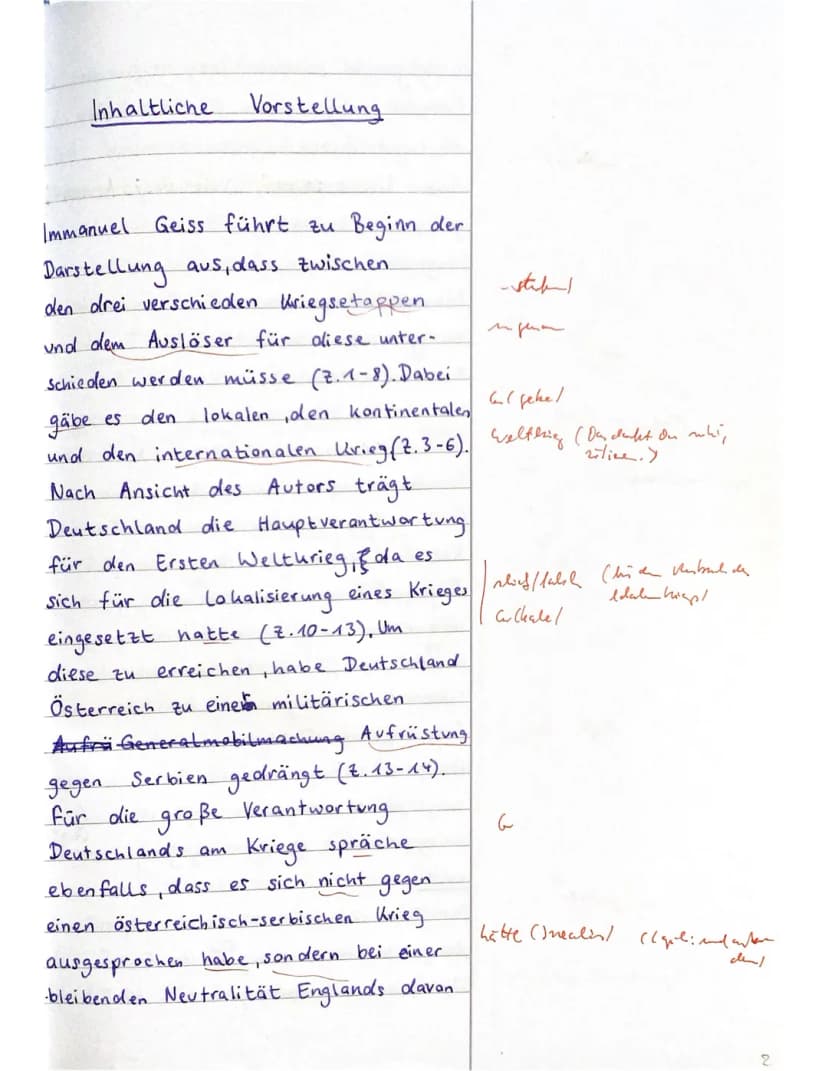 Inhaltliche Vorstellung
Immanuel Geiss führt zu Beginn der
Darstellung aus, dass zwischen
den drei verschieden Kriegsetappen
und dem Auslöser für diese unter-
schieden werden müsse (Z.1-8). Dabei
gäbe es den lokalen, den kontinentalen
und den internationalen Krieg (Z.3-6).
Nach Ansicht des Autors trägt
Deutschland die Hauptverantwortung
für den Ersten Weltkrieg, da es
sich für die Lokalisierung eines Krieges
eingesetzt hatte (Z.10-13). Um
diese zu erreichen, habe Deutschland
Österreich zu einer militärischen
Aufrü Generalmobilmachung Aufrüstung
gegen Serbien gedrängt (Z.13-14).
Für die große Verantwortung
Deutschlands am Kriege spräche
ebenfalls, dass es sich nicht gegen
einen österreichisch-serbischen Krieg
ausgesprochen habe, sondern bei einer
bleibenden Neutralität Englands davon
Weltkrieg (Das
hätte
2